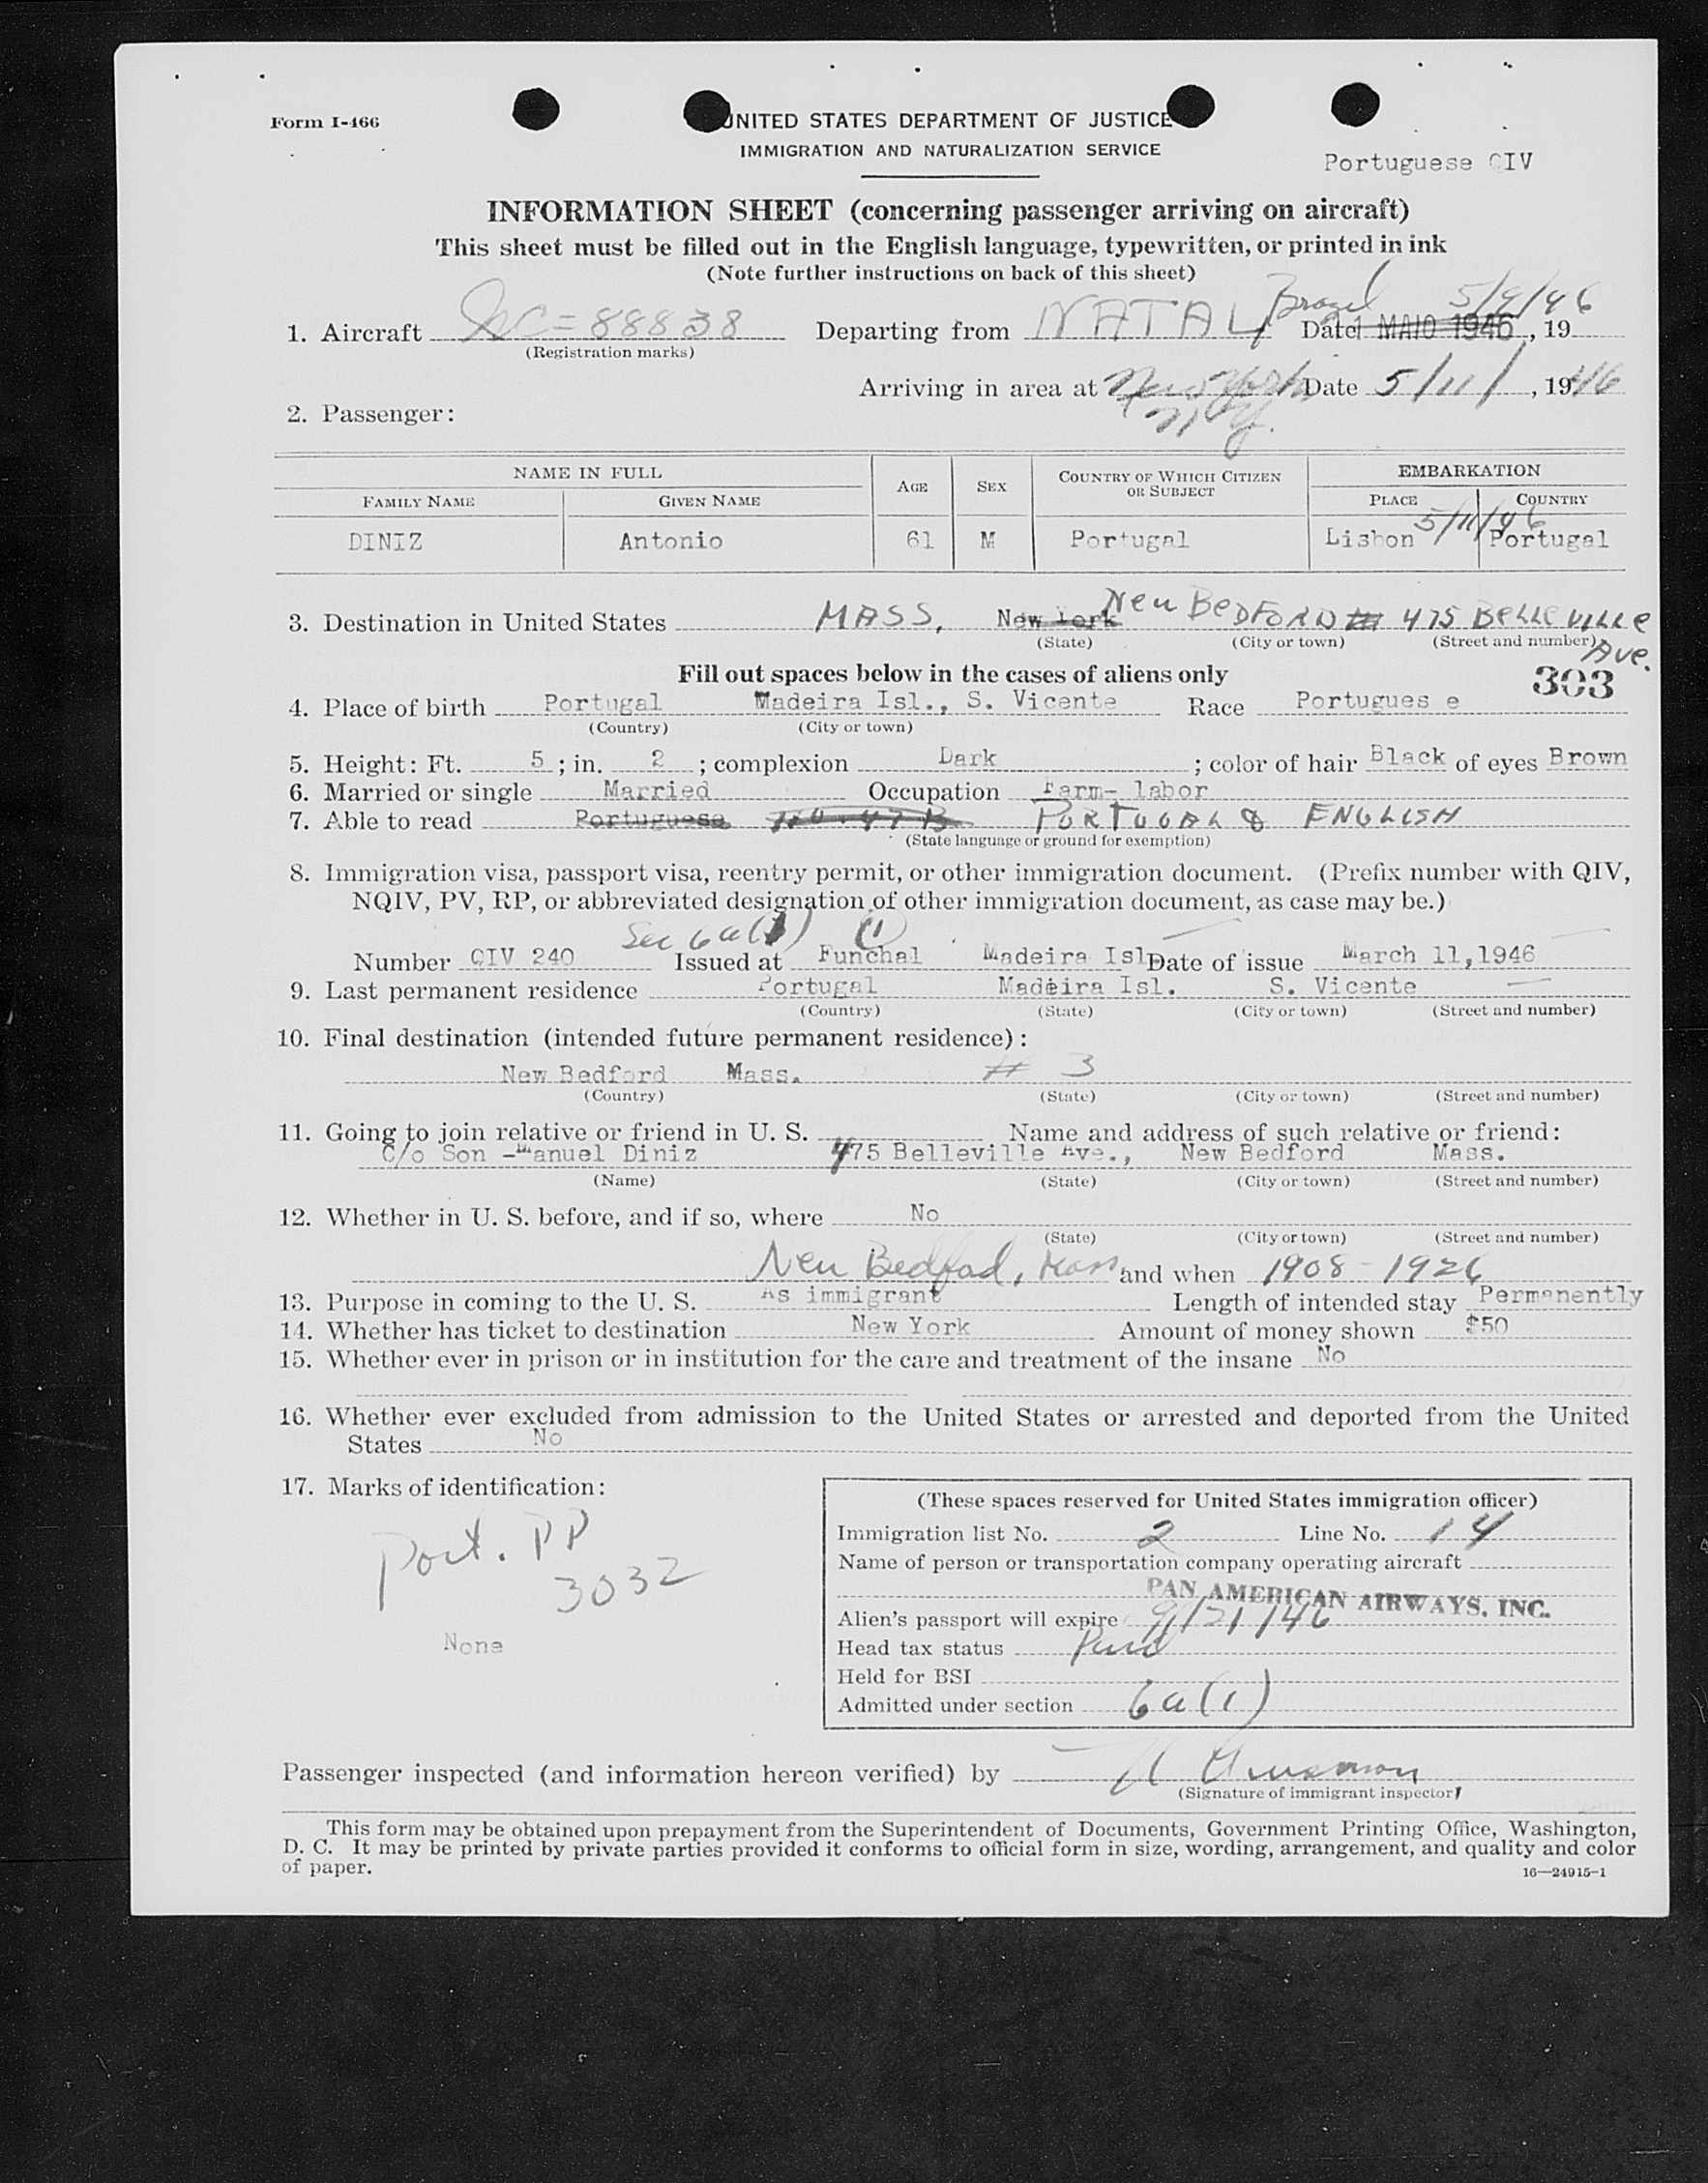 Form I-466
UNITED STATES DEPARTMENT OF JUSTICE
IMMIGRATION AND NATURALIZATION SERVICE
Portuguese QIV
INFORMATION SHEET (concerning passenger arriving on aircraft)
This sheet must be filled out in the English language, typewritten, or printed in ink
(Note further instructions on back of this sheet)
1. Aircraft NC=88838 Departing from NATAL, Brazil Date 1 MAIO 1946, 19 5/9/46
(Registration marks)
Arriving in area at New York N.Y. Date 5/11/, 1946
2. Passenger:
NAME IN FULL AGE SEX COUNTRY OF WHICH CITIZEN OR SUBJECT EMBARKATION
FAMILY NAME GIVEN NAME PLACE COUNTRY
5/11/46
DINIZ Antonio 61 M Portugal Lisbon Portugal
3. Destination in United States MASS, New York New BEDFORD 475 BELLEVILLE Ave.
(State) (City or town) (Street and number)
Fill out spaces below in the cases of aliens only
303
4. Place of birth Portugal Madeira Isl., S. Vicente Race Portugues e
(Country) (City or town)
5. Height: Ft. 5; in. 2; complexion Dark; color of hair Black of eyes Brown
6. Married or single Married Occupation Farm- labor
7. Able to read Portuguese PORTUGAL & ENGLISH
(State language or ground for exemption)
8. Immigration visa, passport visa, reentry permit, or other immigration document. (Prefix number with QIV,
NQIV, PV, RP, or abbreviated designation of other immigration document, as case may be.)
Sec 6a(1) (1)
Number QIV 240 Issued at Funchal Madeira Isl Date of issue March 11,1946
9. Last permanent residence Portugal Madeira Isl. S. Vicente
(Country) (State) (City or town) (Street and number)
10. Final destination (intended future permanent residence):
New Bedford Mass. # 3
(Country) (State) (City or town) (Street and number)
11. Going to join relative or friend in U. S. Name and address of such relative or friend:
C/o Son -Manuel Diniz 475 Belleville Ave., New Bedford Mass.
(Name) (State) (City or town) (Street and number)
12. Whether in U. S. before, and if so, where No
(State) (City or town) (Street and number)
New Bedford, Mass and when 1908 - 1926
13. Purpose in coming to the U. S. As immigrant Length of intended stay Permanently
14. Whether has ticket to destination New York Amount of money shown $50
15. Whether ever in prison or in institution for the care and treatment of the insane No
16. Whether ever excluded from admission to the United States or arrested and deported from the United
States No
17. Marks of identification:
Port. PP
3032
None
(These spaces reserved for United States immigration officer)
Immigration list No. 2 Line No. 14
Name of person or transportation company operating aircraft
PAN AMERICAN AIRWAYS, INC.
Alien's passport will expire 9/21/46
Head tax status Paid
Held for BSI
Admitted under section 6a(1)
Passenger inspected (and information hereon verified) by
(Signature of immigrant inspector)
This form may be obtained upon prepayment from the Superintendent of Documents, Government Printing Office, Washington,
D. C. It may be printed by private parties provided it conforms to official form in size, wording, arrangement, and quality and color
of paper.
16—24915-1